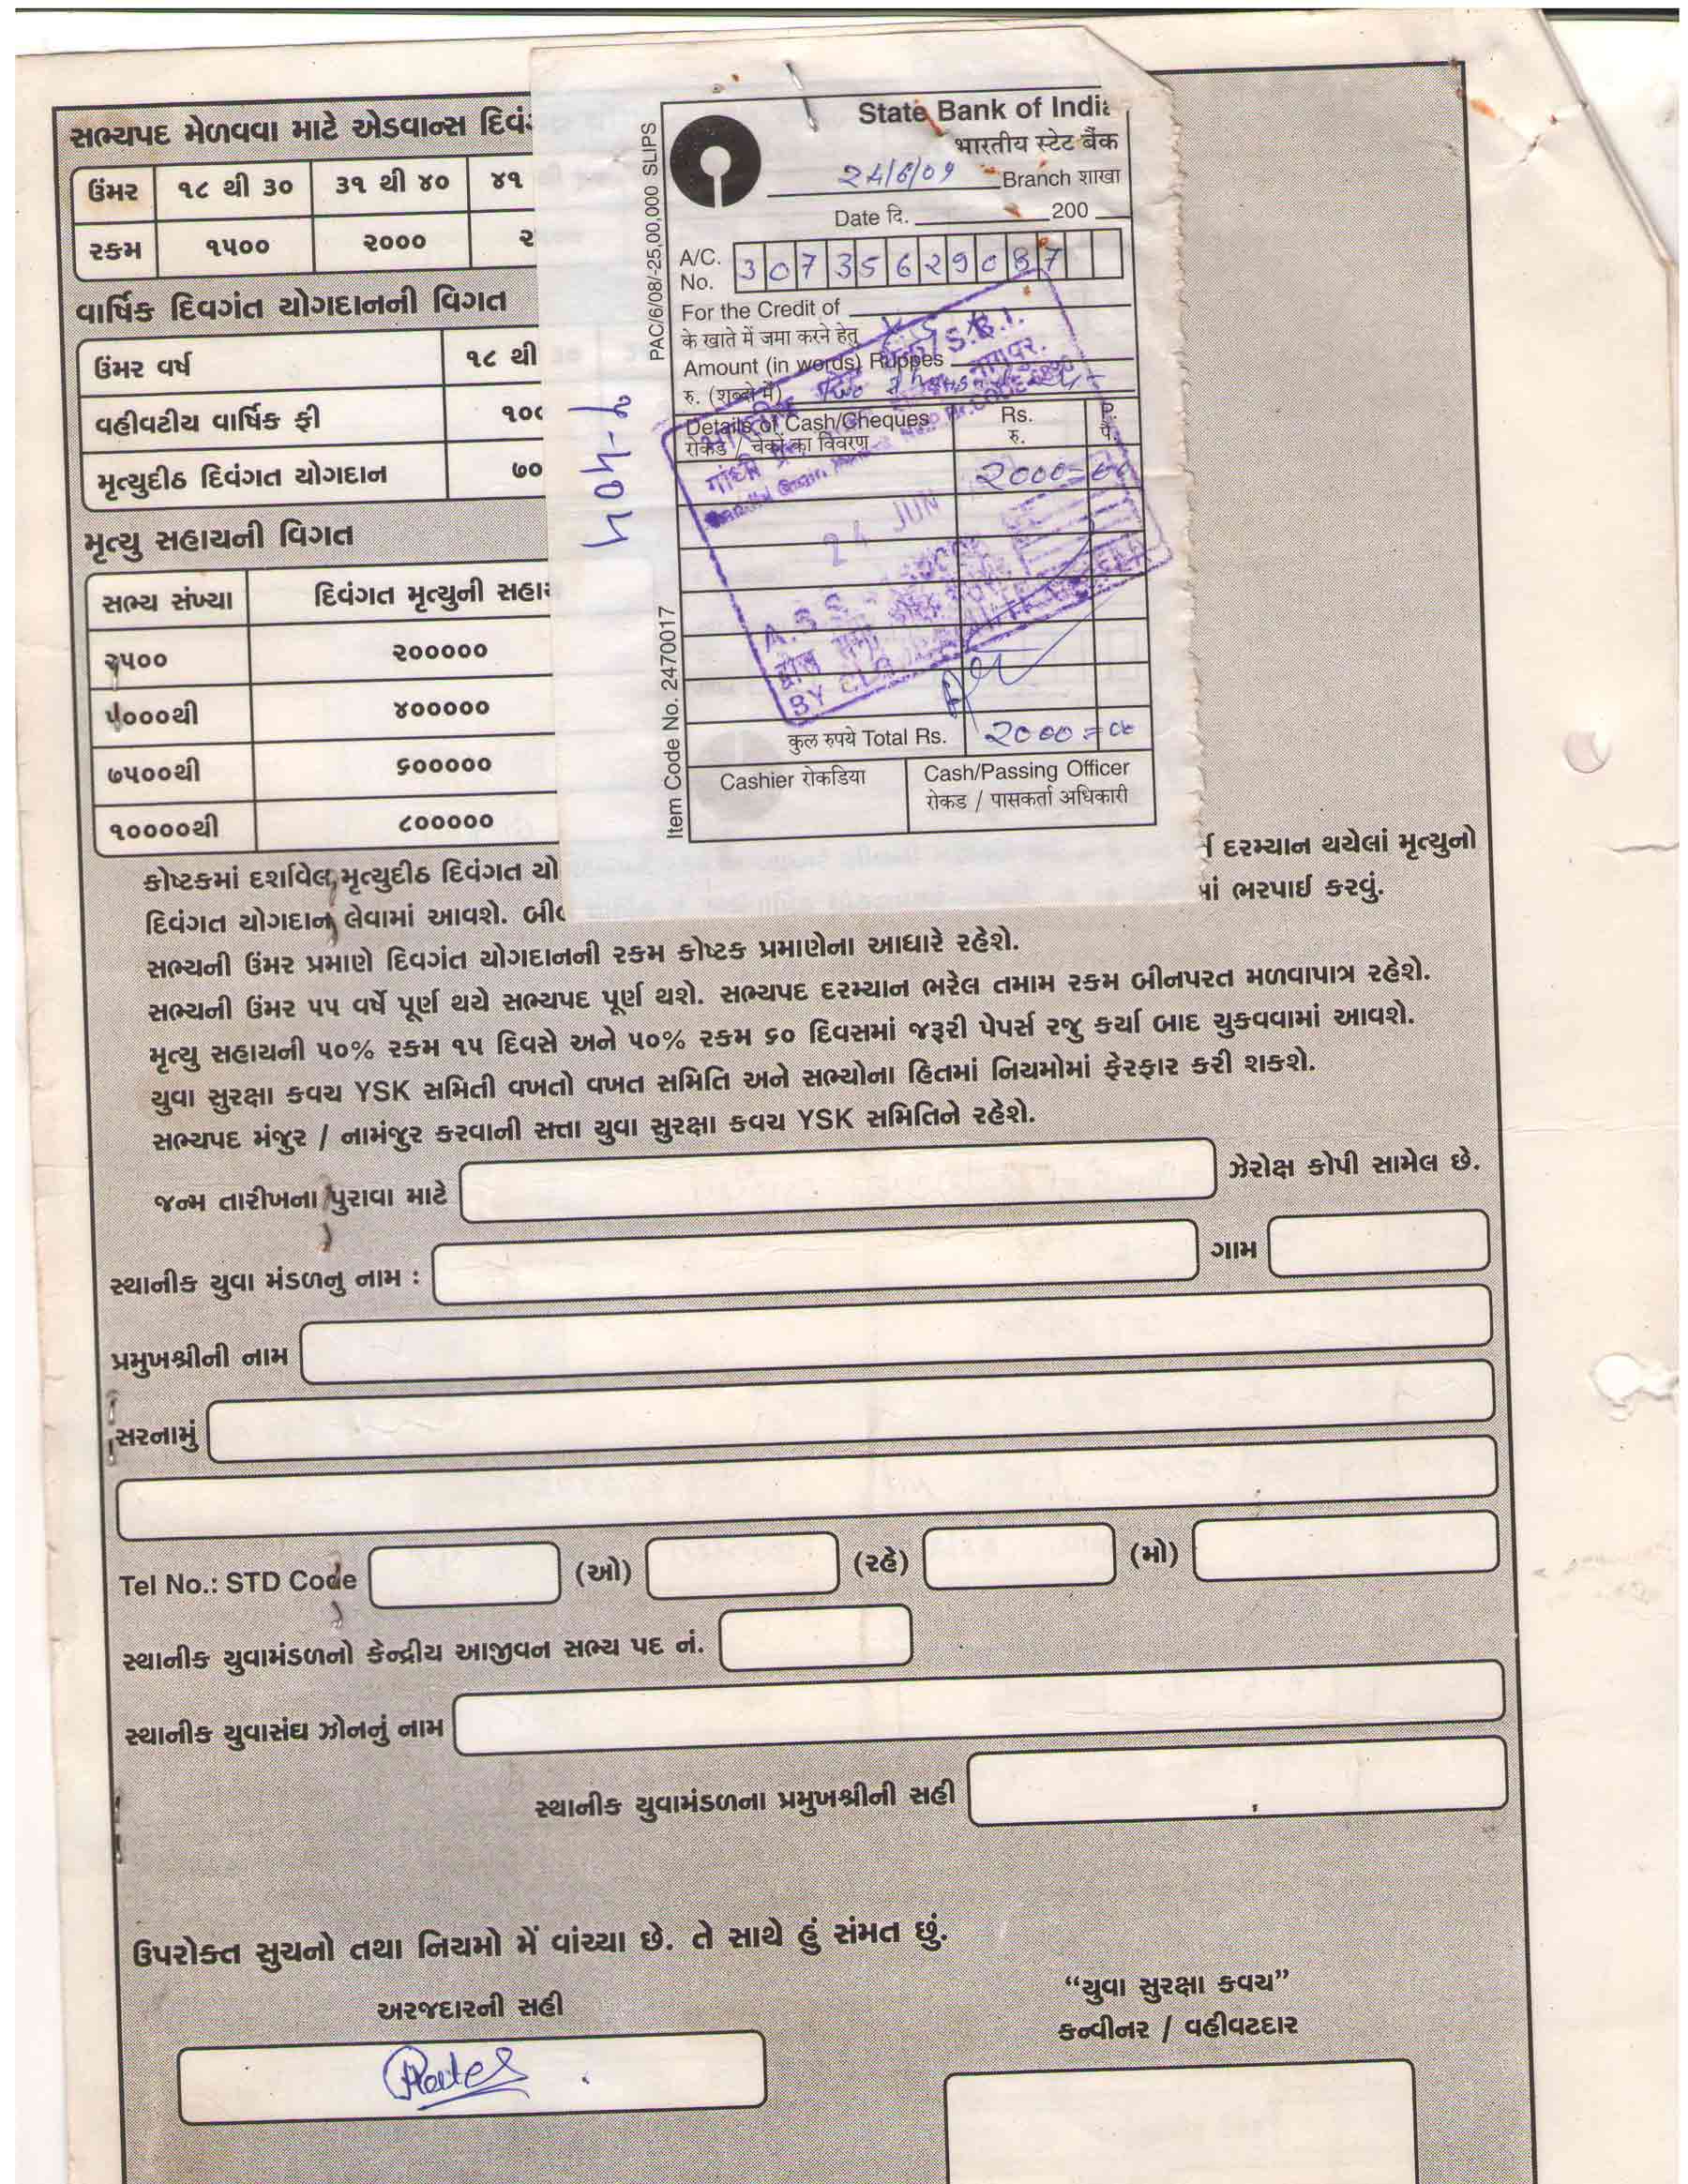 સભ્યપદ મેળવવા માટે એડવાન્સ
ઉંમર ૧૮ થી ૩૦ ૩૧ થી ૪૦ ૪૧
રકમ ૧૫૦૦ ૨૦૦૦
વાર્ષિક દિવગંત યોગદાનની વિગત
ઉંમર વર્ષ ૧૮ થી
વહીવટીય વાર્ષિક ફી
મૃત્યુદીઠ દિવંગત યોગદાન
મૃત્યુ સહાયની વિગત
સભ્ય સંખ્યા દિવંગત મૃત્યુની
૨૫૦૦ ૨૦૦૦૦૦
૫૦૦૦થી ૪૦૦૦૦૦
૭૫૦૦થી ૬૦૦૦૦૦
૧૦૦૦૦થી ૮૦૦૦૦૦
PAC/6/08/-25,00,000 SLIPS
Item Code No. 2470017
State Bank of
भारतीय स्टेट बैंक
24/6/09 Branch शाखा
Date दि. 200
A/C. No. 30735629087
For the Credit of
के खाते में जमा करने हेतु
Amount (in words) Ruppes
रु. (शब्दो में)
Details of Cash/Cheques Rs. P.
रोकड / चेकों का विवरण रु. पै.
2000=00
24 JUN
कुल रुपये Total Rs. 2000=00
Cashier रोकडिया Cash/Passing Officer
रोकड / पासकर्ता अधिकारी
કોષ્ટકમાં દર્શાવેલ મૃત્યુદીઠ દિવંગત દરમ્યાન થયેલાં મૃત્યુનો
દિવંગત યોગદાન લેવામાં આવશે. ભરપાઈ કરવું.
સભ્યની ઉંમર પ્રમાણે દિવગંત યોગદાનની રકમ કોષ્ટક પ્રમાણેના આધારે રહેશે.
સભ્યની ઉંમર ૫૫ વર્ષે પૂર્ણ થયે સભ્યપદ પૂર્ણ થશે. સભ્યપદ દરમ્યાન ભરેલ તમામ રકમ બીનપરત મળવાપાત્ર રહેશે.
મૃત્યુ સહાયની ૫૦% રકમ ૧૫ દિવસે અને ૫૦% રકમ ૬૦ દિવસમાં જરૂરી પેપર્સ રજુ કર્યા બાદ ચુકવવામાં આવશે.
યુવા સુરક્ષા કવચ YSK સમિતી વખતો વખત સમિતિ અને સભ્યોના હિતમાં નિયમોમાં ફેરફાર કરી શકશે.
સભ્યપદ મંજુર / નામંજુર કરવાની સત્તા યુવા સુરક્ષા કવચ YSK સમિતિને રહેશે.
જન્મ તારીખના પુરાવા માટે ઝેરોક્ષ કોપી સામેલ છે.
સ્થાનીક યુવા મંડળનુ નામ : ગામ
પ્રમુખશ્રીની નામ
સરનામું
Tel No.: STD Code (ઓ) (રહે) (મો)
સ્થાનીક યુવામંડળનો કેન્દ્રીય આજીવન સભ્ય પદ નં.
સ્થાનીક યુવાસંઘ ઝોનનું નામ
સ્થાનીક યુવામંડળના પ્રમુખશ્રીની સહી
ઉપરોક્ત સુચનો તથા નિયમો મેં વાંચ્યા છે. તે સાથે હું સંમત છું.
અરજદારની સહી
“યુવા સુરક્ષા કવચ”
કન્વીનર / વહીવટદાર